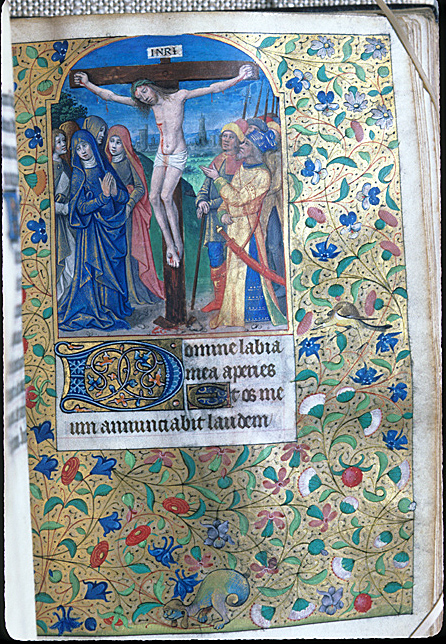 INRI
Domine labia
mea aperies
Et os me
um annunciabit laudem